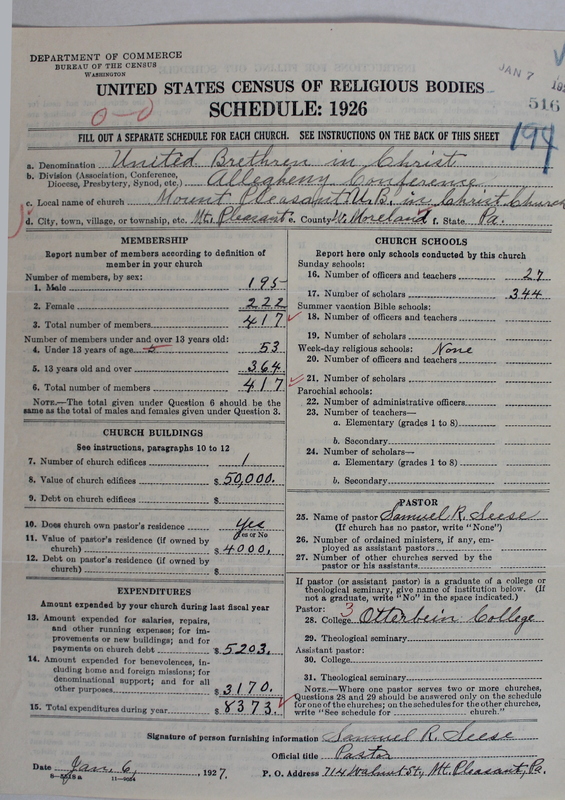 DEPARTMENT OF COMMERCE
BUREAU OF THE CENSUS
WASHINGTON
JAN 7
516
UNITED STATES CENSUS OF RELIGIOUS BODIES
SCHEDULE: 1926
0-0
194
FILL OUT A SEPARATE SCHEDULE FOR EACH CHURCH. SEE INSTRUCTIONS ON THE BACK OF THIS SHEET
a. Denomination United Brethren in Christ
b. Division (Association, Conference, Diocese, Presbytery, Synod, etc.) Allegheny Conference
c. Local name of church Mount Pleasant U.B. in Christ Church
d. City, town, village, or township, etc. Mt. Pleasant e. County W. Moreland f. State Pa.
MEMBERSHIP
Report number of members according to definition of
member in your church
Number of members, by sex:
1. Male 195
2. Female 222
3. Total number of members 417
Number of members under and over 13 years old:
4. Under 13 years of age 53
5. 13 years old and over 364
6. Total number of members 417
NOTE.—The total given under Question 6 should be
same as the total of males and females given under Question 3.
CHURCH BUILDINGS
See instructions, paragraphs 10 to 12
7. Number of church edifices 1
8. Value of church edifices $50,000.
9. Debt on church edifices $
10. Does church own pastor's residence yes
Yes or No
11. Value of pastor's residence (if owned by
church) $4000.
12. Debt on pastor's residence (if owned by
church) $
EXPENDITURES
Amount expended by your church during last fiscal year
13. Amount expended for salaries, repairs,
and other running expenses; for im-
provements or new buildings; and for
payments on church debt $5203.
14. Amount expended for benevolences, in-
cluding home and foreign missions; for
denominational support; and for all
other purposes $3170.
15. Total expenditures during year $8373.
CHURCH SCHOOLS
Report here only schools conducted by this church
Sunday schools:
16. Number of officers and teachers 27
17. Number of scholars 344
Summer vacation Bible schools:
18. Number of officers and teachers
19. Number of scholars
Week-day religious schools: None
20. Number of officers and teachers
21. Number of scholars
Parochial schools:
22. Number of administrative officers
23. Number of teachers—
a. Elementary (grades 1 to 8)
b. Secondary
24. Number of scholars—
a. Elementary (grades 1 to 8)
b. Secondary
PASTOR
25. Name of pastor Samuel R. Seese
(If church has no pastor, write "None")
26. Number of ordained ministers, if any, em-
ployed as assistant pastors
27. Number of other churches served by the
pastor or his assistants
If pastor (or assistant pastor) is a graduate of a college or
theological seminary, give name of institution below. (If
not a graduate, write "No" in the space indicated.)
Pastor: 3
28. College Otterbein College
29. Theological seminary
Assistant pastor:
30. College
31. Theological seminary
NOTE.—Where one pastor serves two or more churches,
Questions 28 and 29 should be answered only on the schedule
for one of the churches; on the schedules for the other churches,
write "See schedule for church."
Signature of person furnishing information Samuel R. Seese
Official title Pastor
Date Jan. 6, 1927. P. O. Address 714 Walnut St., Mt. Pleasant, Pa.